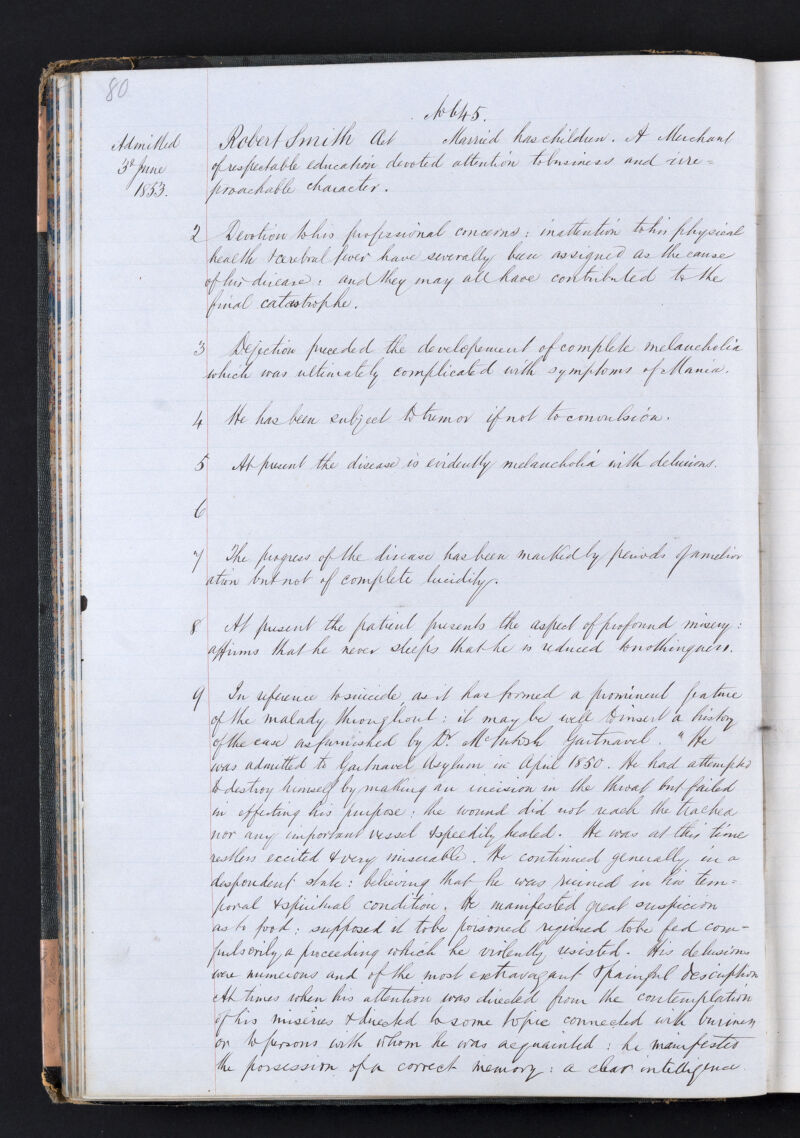 80
No 645.
Admitted
3d June
1853.
Robert Smith Aet Married has children. A Merchant
of respectable education devoted attention to business and irre=
proachable character.
2 Devotion to his professional concerns: inattention to his physical
health & cerebral fever have severally been assigned as the cause
of his disease: and they may all have contributed to the
final catastrophe.
3 Dejection preceded the developement of complete melancholia
which was ultimately complicated with symptoms of Mania.
4 He has been subject to tremor if not to convulsion.
5 At present the disease is evidently melancholia with delusions.
6
7 The progress of the disease has been marked by periods of amelior
ation but not of complete lucidity.
8 At present the patient presents the aspect of profound misery:
affirms that he never sleeps that he is reduced to nothingness.
9 In reference to suicide, as it has formed a prominent feature
of the malady throughout: it may be well to insert a history
of the case as furnished by Dr. McIntosh Gartnavel. "He
was admitted to Gartnavel Asylum in April 1850. He had attempted
to destroy himself by making an incision in the throat but failed
in effecting his purpose: the wound did not reach the trachea
nor any important vessel & speedily healed. He was at this time
restless excited & very miserable. He continued generally in a
despondent state: believing that he was ruined in his tem=
poral & spiritual condition. He manifested great suspicion
as to food: supposed it to be poisoned required to be fed com=
pulsorily, a proceeding which he violently resisted. His delusions
were numerous and of the most extravagant & painful description
At times when his attention was directed from the contemplation
of his miseries & directed to some topic connected with business
or to persons with whom he was acquainted: he manifested
the possession of a correct memory: a clear intelligence